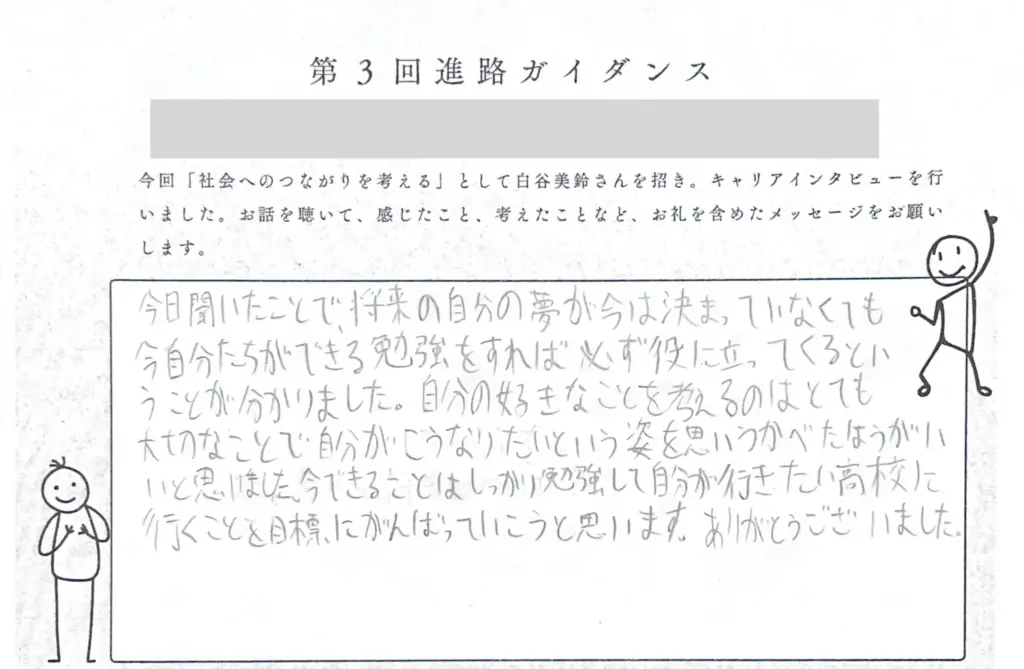 第3回進路ガイダンス
今回「社会へのつながりを考える」として白谷美鈴さんを招き。キャリアインタビューを行
いました。お話を聴いて、感じたこと、考えたことなど、お礼を含めたメッセージをお願い
します。
今日聞いたことで、将来の自分の夢が今は決まっていなくても
今自分たちができる勉強をすれば必ず役に立ってくるとい
うことが分かりました。自分の好きなことを考えるのはとても
大切なことで自分がこうなりたいという姿を思いうかべたほうがい
いと思いました。今できることはしっかり勉強して自分が行きたい高校に
行くことを目標にがんばっていこうと思います。ありがとうございました。